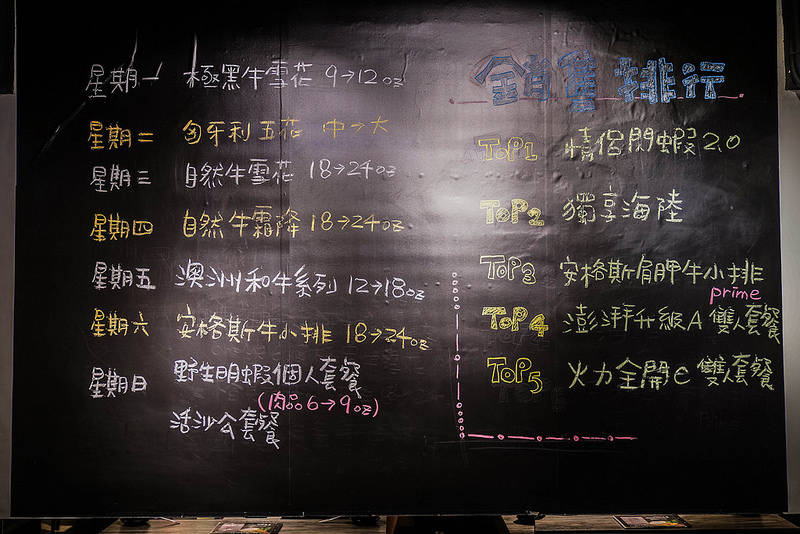 星期一 極黑牛雪花 9→12oz
星期二 匈牙利五花 中→大
星期三 自然牛雪花 18→24oz
星期四 自然牛霜降 18→24oz
星期五 澳洲和牛系列 12→18oz
星期六 安格斯牛小排 18→24oz
星期日 野生明蝦個人套餐
(肉品6→9oz)
活沙公套餐
銷售排行
TOP1 情侶閃蝦2.0
TOP2 獨享海陸
TOP3 安格斯肩胛牛小排
prime
TOP4 澎湃升級A雙人套餐
TOP5 火力全開C雙人套餐